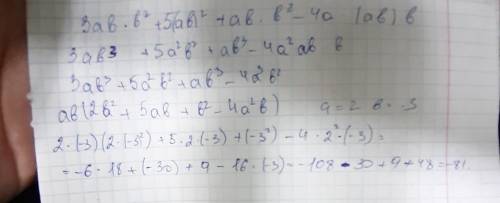 3ab · b² + 5(ab)² + ab · b² - 4a (ab) b
3ab3 + 5a²b² + ab³ - 4a²ab b
3ab³ + 5a²b² + ab³ - 4a³b²
ab(2b² + 5ab + b² - 4a²b) a = 2 b = -3
2·(-3)(2·(-3²) + 5·2·(-3) + (-3²) - 4·2²·(-3) =
= -6·18 + (-30) + 9 - 16·(-3) = -108 - 30 + 9 + 48 = -81.